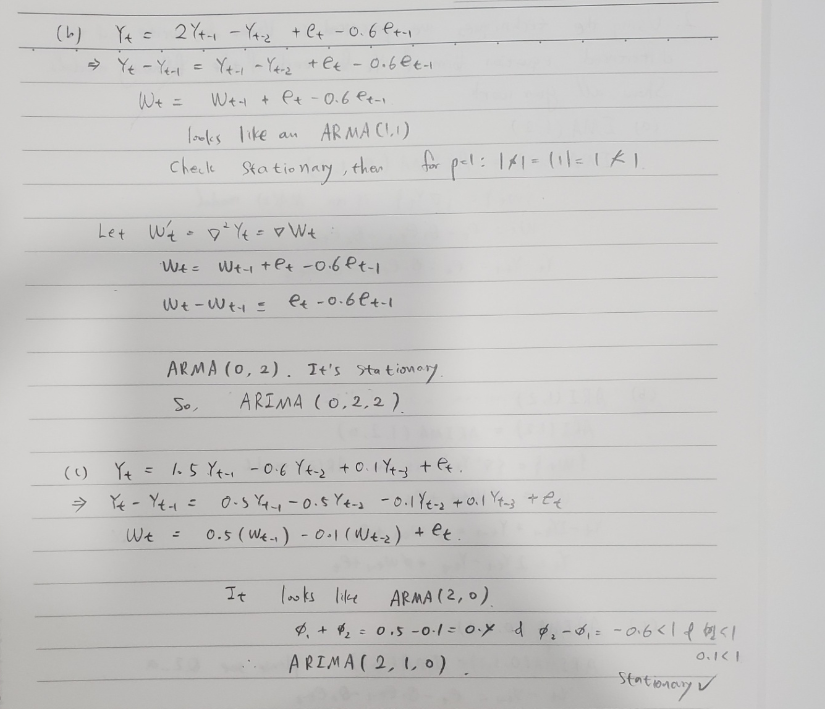 (b) Yt = 2Yt-1 - Yt-2 + et - 0.6et-1
⇒ Yt - Yt-1 = Yt-1 - Yt-2 + et - 0.6et-1
Wt = Wt-1 + et - 0.6et-1
looks like an ARMA(1,1)
Check Stationary, then for p=1: |ϕ| = |1| = 1 ≮ 1
Let Wt' = ∇²Yt = ∇Wt
Wt = Wt-1 + et - 0.6et-1
Wt - Wt-1 = et - 0.6et-1
ARMA(0, 2). It's stationary.
So, ARIMA(0,2,2)
(c) Yt = 1.5Yt-1 - 0.6Yt-2 + 0.1Yt-3 + et.
⇒ Yt - Yt-1 = 0.5Yt-1 - 0.5Yt-2 - 0.1Yt-2 + 0.1Yt-3 + et
Wt = 0.5(Wt-1) - 0.1(Wt-2) + et.
It looks like ARMA(2,0)
ϕ1 + ϕ2 = 0.5 - 0.1 = 0.4 & ϕ2 - ϕ1 = -0.6 < 1 & < 1
0.1 < 1
∴ ARIMA(2,1,0).
Stationary ✓